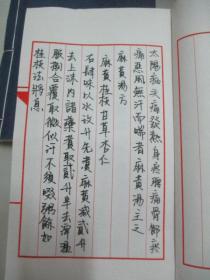 太陽病頭痛發熱身疼腰痛骨節疼
痛惡風無汗而喘者麻黃湯主之
麻黃湯方
麻黃 桂枝 甘草 杏仁
右肆味以水玖升先煮麻黃減貳升
去上沫內諸藥煮取貳升半去滓溫
服捌合覆取微似汗不須啜粥餘如
桂枝法將息